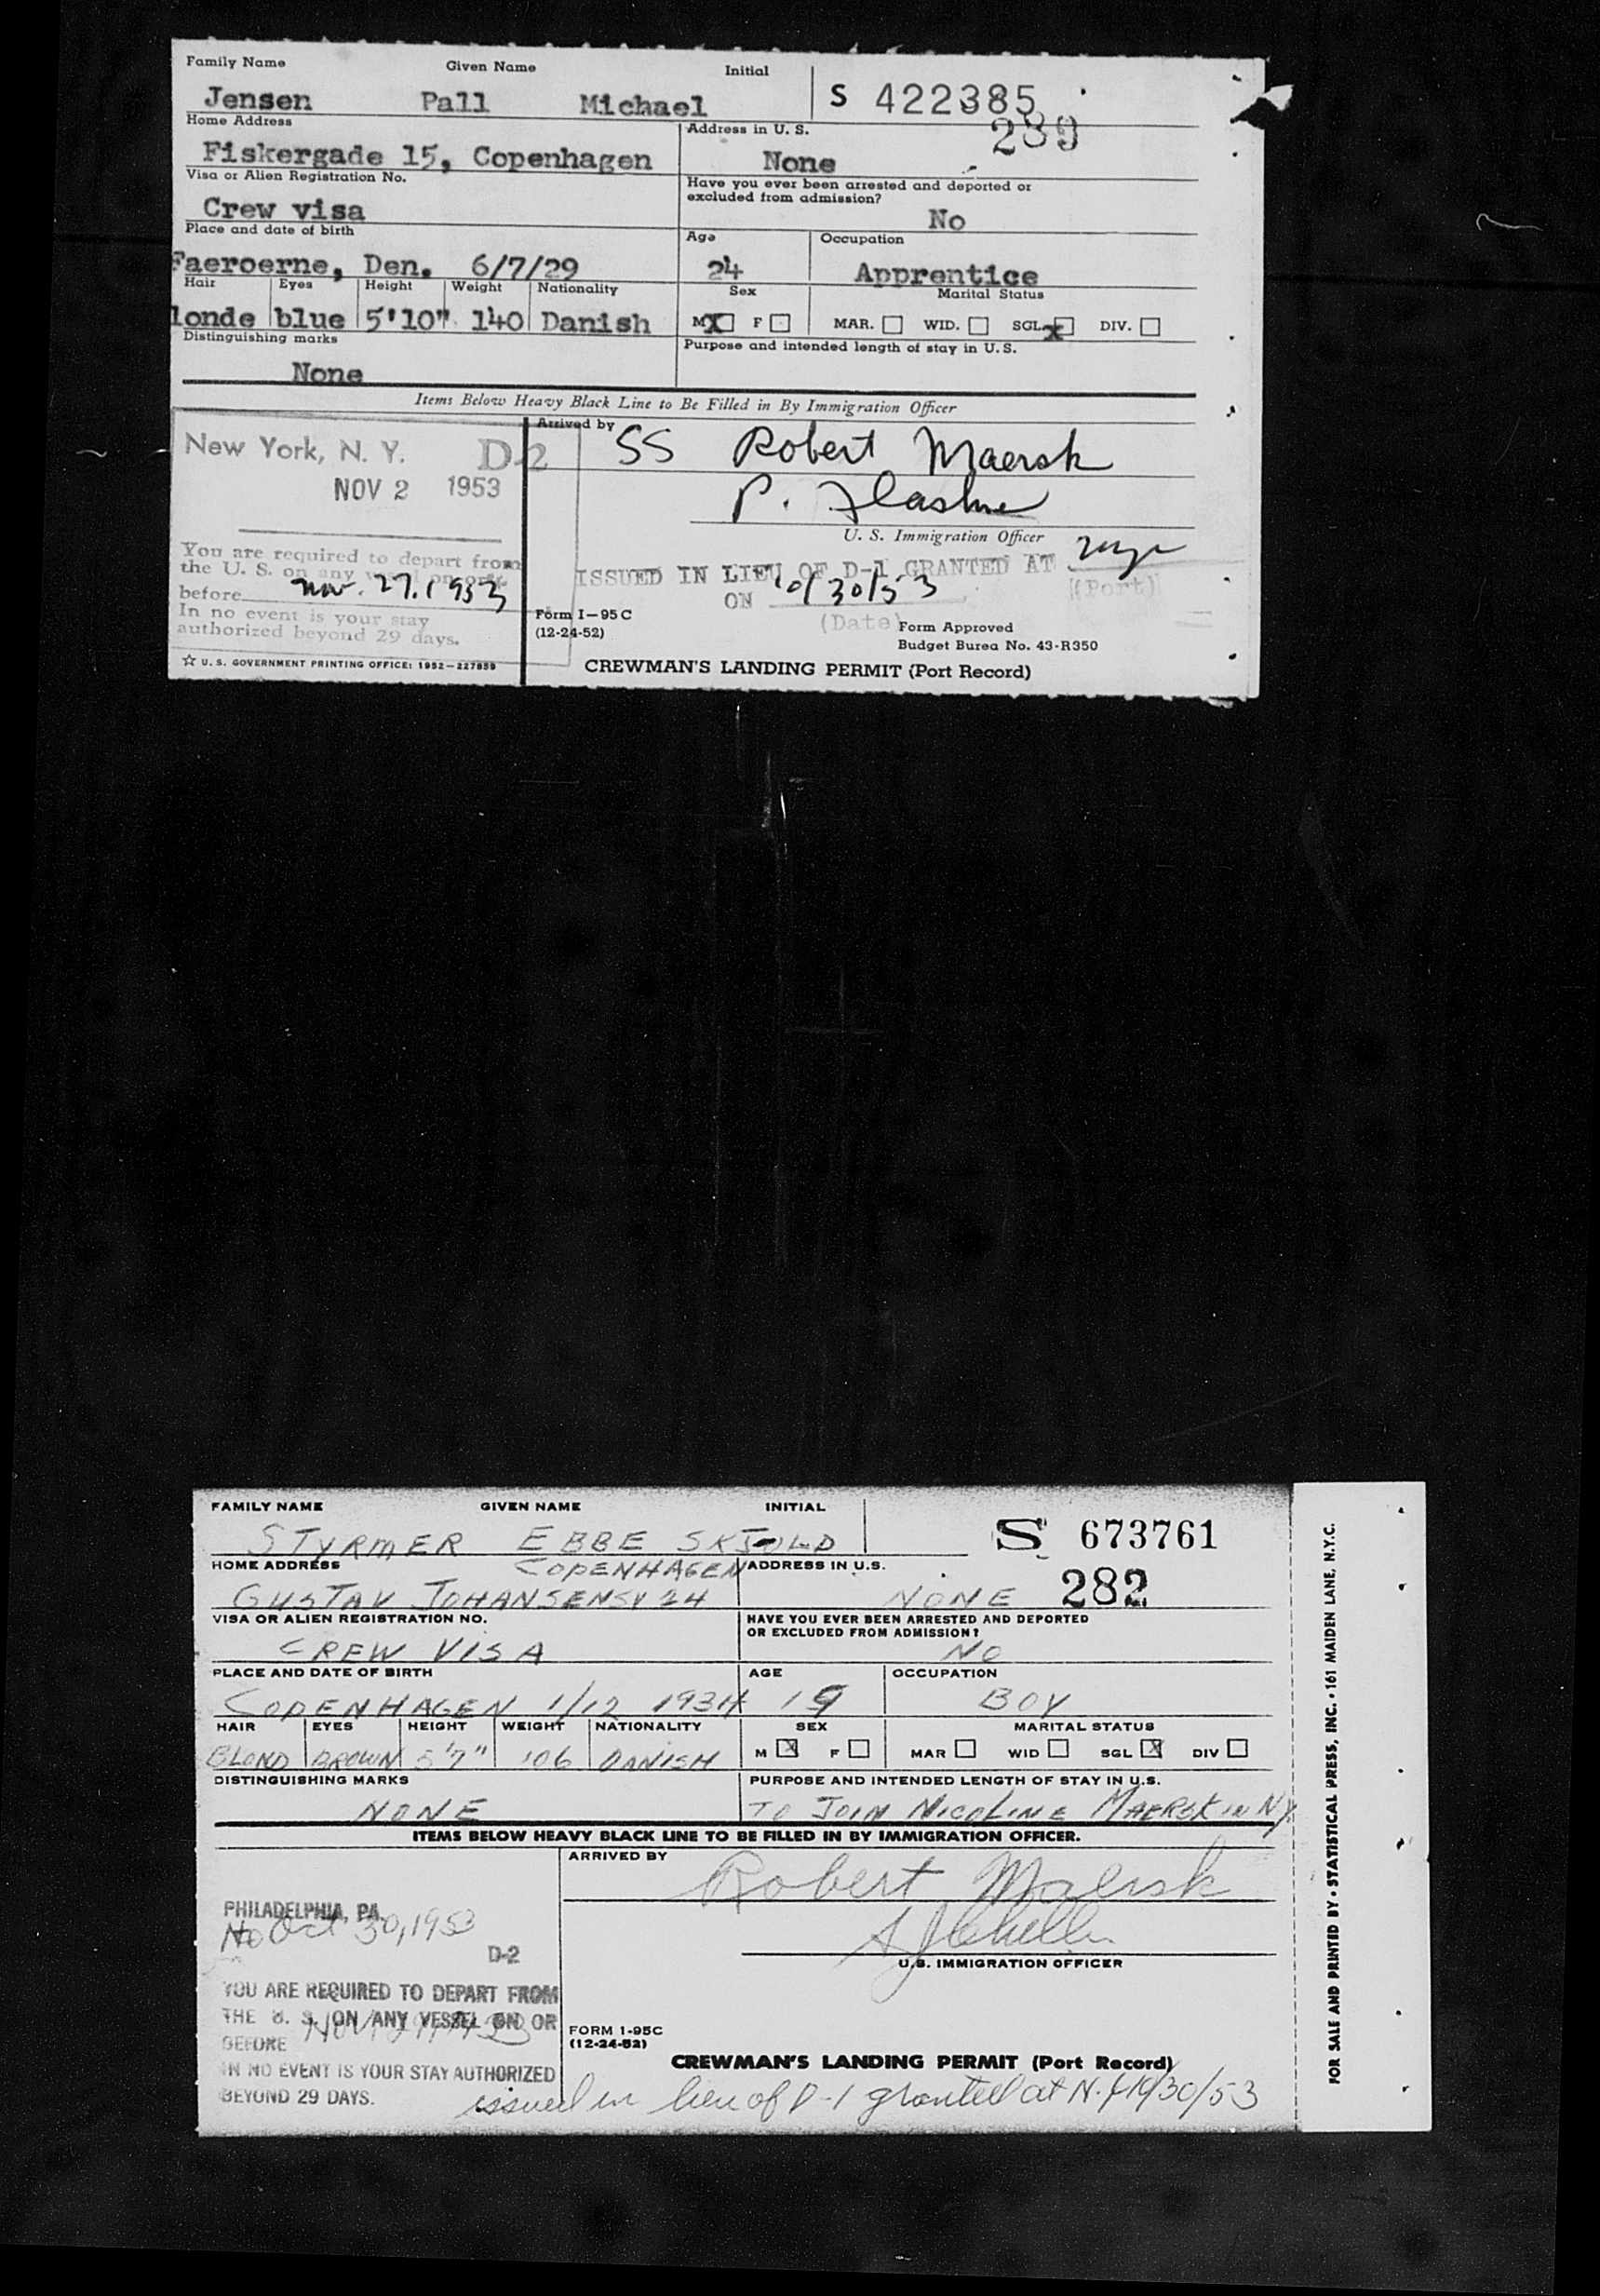 Family Name Given Name Initial
Jensen Pall Michael S 422385
289
Home Address Address in U. S.
Fiskergade 15, Copenhagen None
Visa or Alien Registration No. Have you ever been arrested and deported or
excluded from admission?
Crew visa No
Place and date of birth Age Occupation
Faeroerne, Den. 6/7/29 24 Apprentice
Hair Eyes Height Weight Nationality Sex Marital Status
londe blue 5'10" 140 Danish M X F MAR. WID. SGL. x DIV.
Distinguishing marks Purpose and intended length of stay in U. S.
None
Items Below Heavy Black Line to Be Filled in By Immigration Officer
Arrived by
SS Robert Maersk
New York, N. Y. D-2
NOV 2 1953
P.
U. S. Immigration Officer
You are required to depart from
the U. S. on any vessel on or
before Nov. 27. 1953
In no event is your stay
authorized beyond 29 days.
ISSUED IN LIEU OF D-1 GRANTED AT
ON 10/30/53
(Date) (Port)
Form I-95 C
(12-24-52)
Form Approved
Budget Burea No. 43-R350
☆ U. S. GOVERNMENT PRINTING OFFICE: 1952-227859
CREWMAN'S LANDING PERMIT (Port Record)
FAMILY NAME GIVEN NAME INITIAL
STYRMER EBBE SKJOLD S 673761
HOME ADDRESS COPENHAGEN ADDRESS IN U.S.
GUSTAV JOHANSENSV 24 NONE 282
VISA OR ALIEN REGISTRATION NO. HAVE YOU EVER BEEN ARRESTED AND DEPORTED
OR EXCLUDED FROM ADMISSION?
CREW VISA NO
PLACE AND DATE OF BIRTH AGE OCCUPATION
COPENHAGEN 1/12 1934 19 BOY
HAIR EYES HEIGHT WEIGHT NATIONALITY SEX MARITAL STATUS
BLOND BROWN 5'7" 106 DANISH M X F MAR WID SGL X DIV
DISTINGUISHING MARKS PURPOSE AND INTENDED LENGTH OF STAY IN U.S.
NONE TO JOIN NICOLINE MAERSK IN NY
ITEMS BELOW HEAVY BLACK LINE TO BE FILLED IN BY IMMIGRATION OFFICER.
ARRIVED BY
Robert Maersk
PHILADELPHIA, PA.
Oct 30, 1953
D-2
U.S. IMMIGRATION OFFICER
YOU ARE REQUIRED TO DEPART FROM
THE U. S. ON ANY VESSEL ON OR
BEFORE
IN NO EVENT IS YOUR STAY AUTHORIZED
BEYOND 29 DAYS.
FORM 1-95C
(12-24-52)
CREWMAN'S LANDING PERMIT (Port Record)
issued in lieu of D-1 granted at N.Y. 10/30/53
FOR SALE AND PRINTED BY • STATISTICAL PRESS, INC. • 161 MAIDEN LANE, N.Y.C.